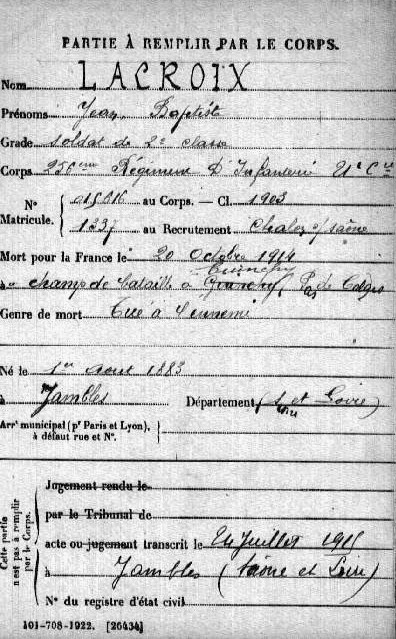 PARTIE À REMPLIR PAR LE CORPS.
Nom LACROIX
Prénoms Jean Baptiste
Grade soldat de 2e classe
Corps 256ème Régiment D'Infanterie
N° Matricule. 015616 au Corps. — Cl. 1903
1337 au Recrutement Chalon s/saône
Mort pour la France le 20 Octobre 1914
Cuinchy
à champ de bataille à Pas de Calais
Genre de mort Tué à l'ennemi
Né le 1er Aout 1883
à Jambles Département (S. et Loire)
Arrt municipal (pr Paris et Lyon),
à défaut rue et N°.
Cette partie
n'est pas à remplir
par le Corps.
Jugement rendu le
par le Tribunal de
acte ou jugement transcrit le 24 Juillet 1915
à Jambles (Saône et Loire)
N° du registre d'état civil
101-708-1922. [26434]